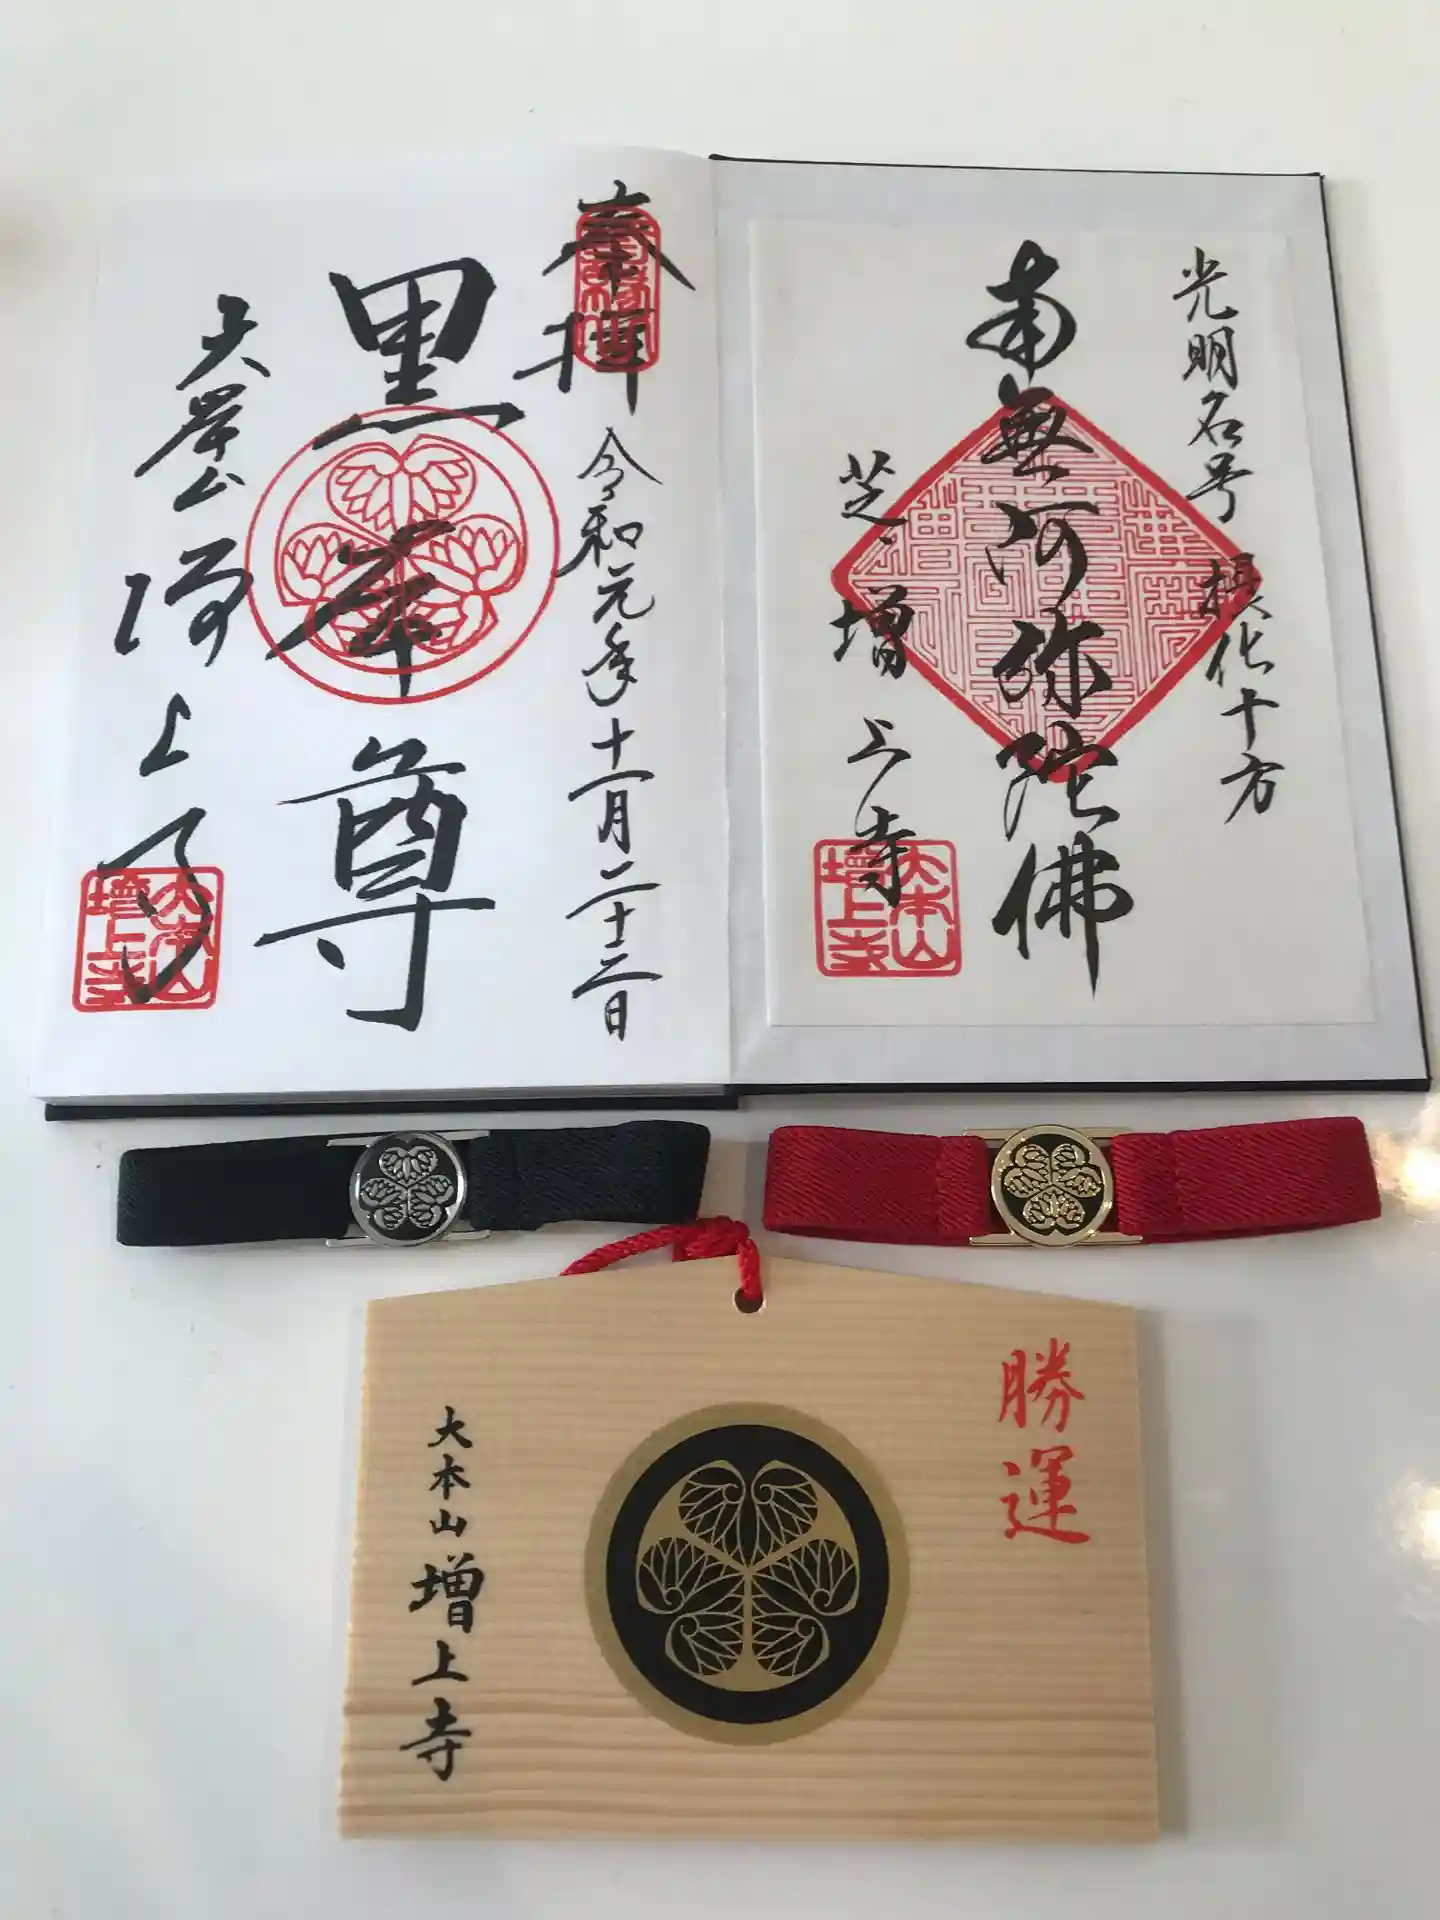 光明名号
摂化十方
南無阿弥陀佛
芝、増上寺
大本山
増上寺
奉拝
令和元年十一月二十三日
黒本尊
大本山
増上寺
大本山
増上寺
勝運
大本山増上寺